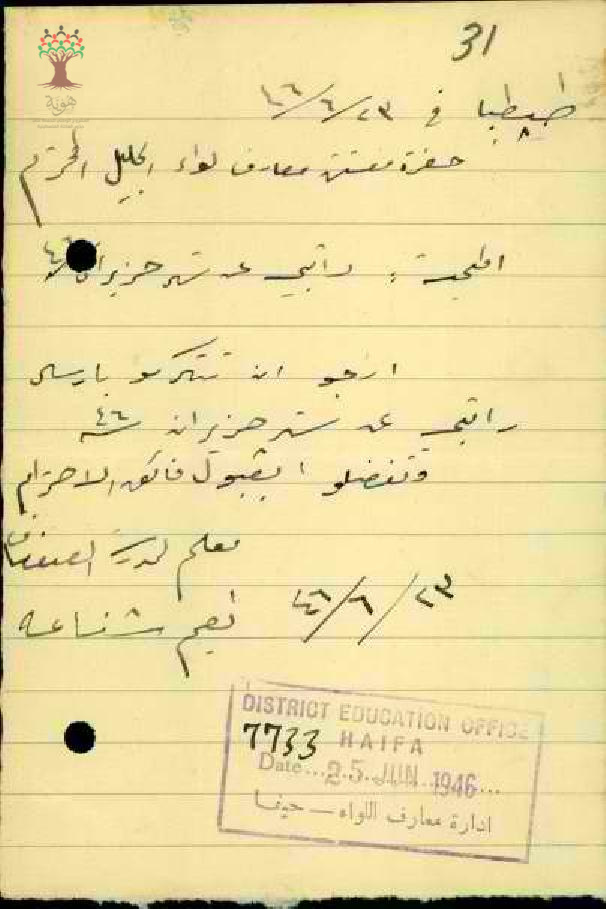 31
في ٢٣/٦/٤٦
حضرة مفتش معارف لواء الجليل المحترم
راتبي عن شهر حزيران ٤٦
ارجو ان تتكرموا بارسال
راتبي عن شهر حزيران سنة ٤٦
وتفضلوا بقبول فائق الاحترام
معلم مدرسة
٢٣/٦/٤٦
نعيم شناعه
DISTRICT EDUCATION OFFICE
7733 HAIFA
Date ... 25 JUN 1946 ...
ادارة معارف اللواء — حيفا
هوية